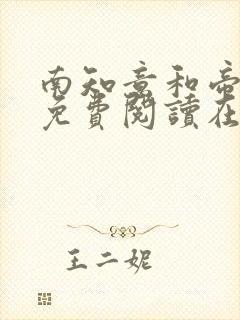 南知意和帝
免費閱讀在
王二妮